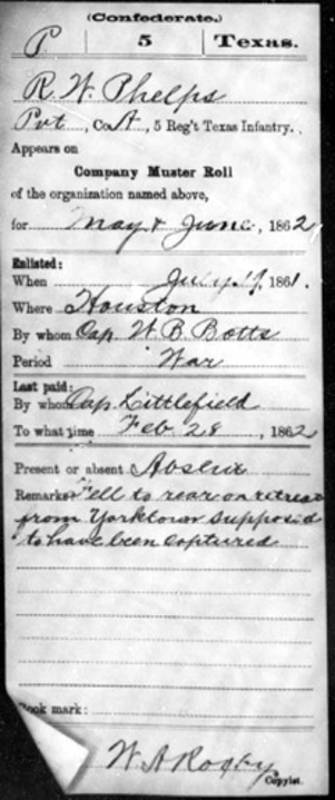 (Confederate.)
P. 5 Texas.
R. W. Phelps
Pvt, Co. A, 5 Reg't Texas Infantry.
Appears on
Company Muster Roll
of the organization named above,
for May & June, 1862
Enlisted:
When July 19, 1861.
Where Houston
By whom Cap. W. B. Botts
Period War
Last paid:
By whom Cap Littlefield
To what time Feb 28, 1862
Present or absent Absent
Remarks: Fell to rear on retreat
from Yorktown supposed
to have been captured
Book mark:
Copyist.